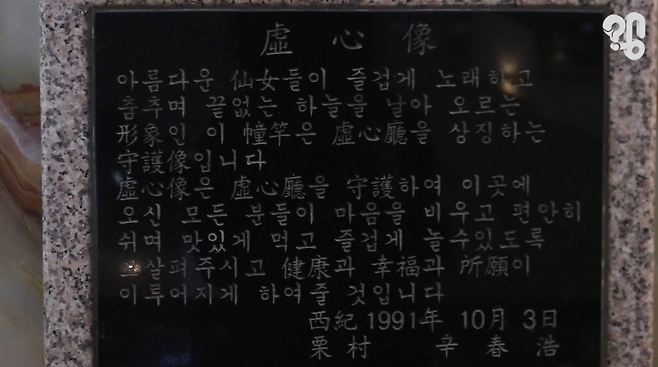 虛心像
아름다운 仙女들이 즐겁게 노래하고
춤추며 끝없는 하늘을 날아 오르는
形象인 이 幢竿은 虛心廳을 상징하는
守護像입니다
虛心像은 虛心廳을 守護하여 이곳에
오신 모든 분들이 마음을 비우고 편안히
쉬며 맛있게 먹고 즐겁게 놀수있도록
보살펴주시고 健康과 幸福과 所願이
이루어지게 하여줄 것입니다
西紀 1991年 10月 3日
栗村 辛春浩